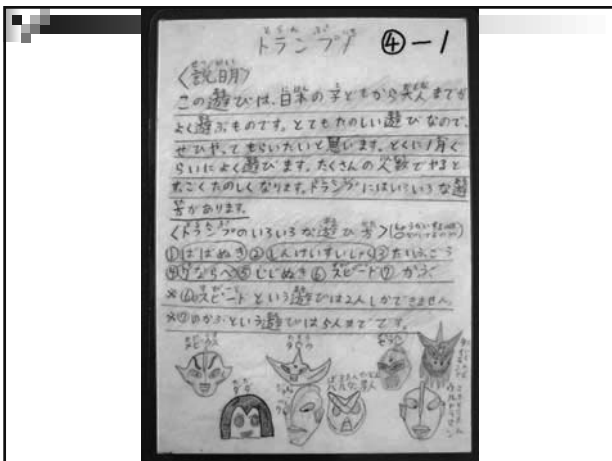 トランプ ④-1
〈説明〉
この遊びは、日本の子どもから大人までが
よく遊ぶものです。とてもたのしい遊びなので、
ぜひやってもらいたいと思います。とくに1月く
らいによく遊びます。たくさんの人数でやると
すごくたのしくなります。トランプにはいろいろな遊
び方があります。
〈トランプのいろいろな遊び方〉
①ばばぬき②しんけいすいじゃく③たいふごう
④7ならべ⑤じじぬき⑥スピード⑦かぶ
※⑥スピードという遊びは2人しかできません。
※⑦のかぶという遊びは5人までです。
メビウス
タロウ
ウルトラマン